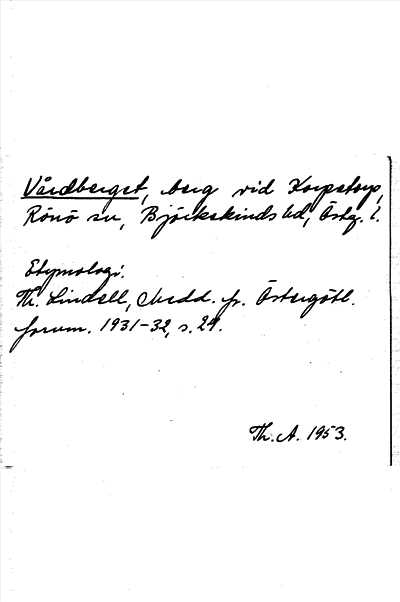 Vårdberget, berg vid Korpstorp,
Rönö sn, Björkekinds hd, Östg. l.
Etymologi:
Th. Lindell, Medd. fr. Östergötl.
fornm. 1931-32, s. 29.
Th. A. 1953.